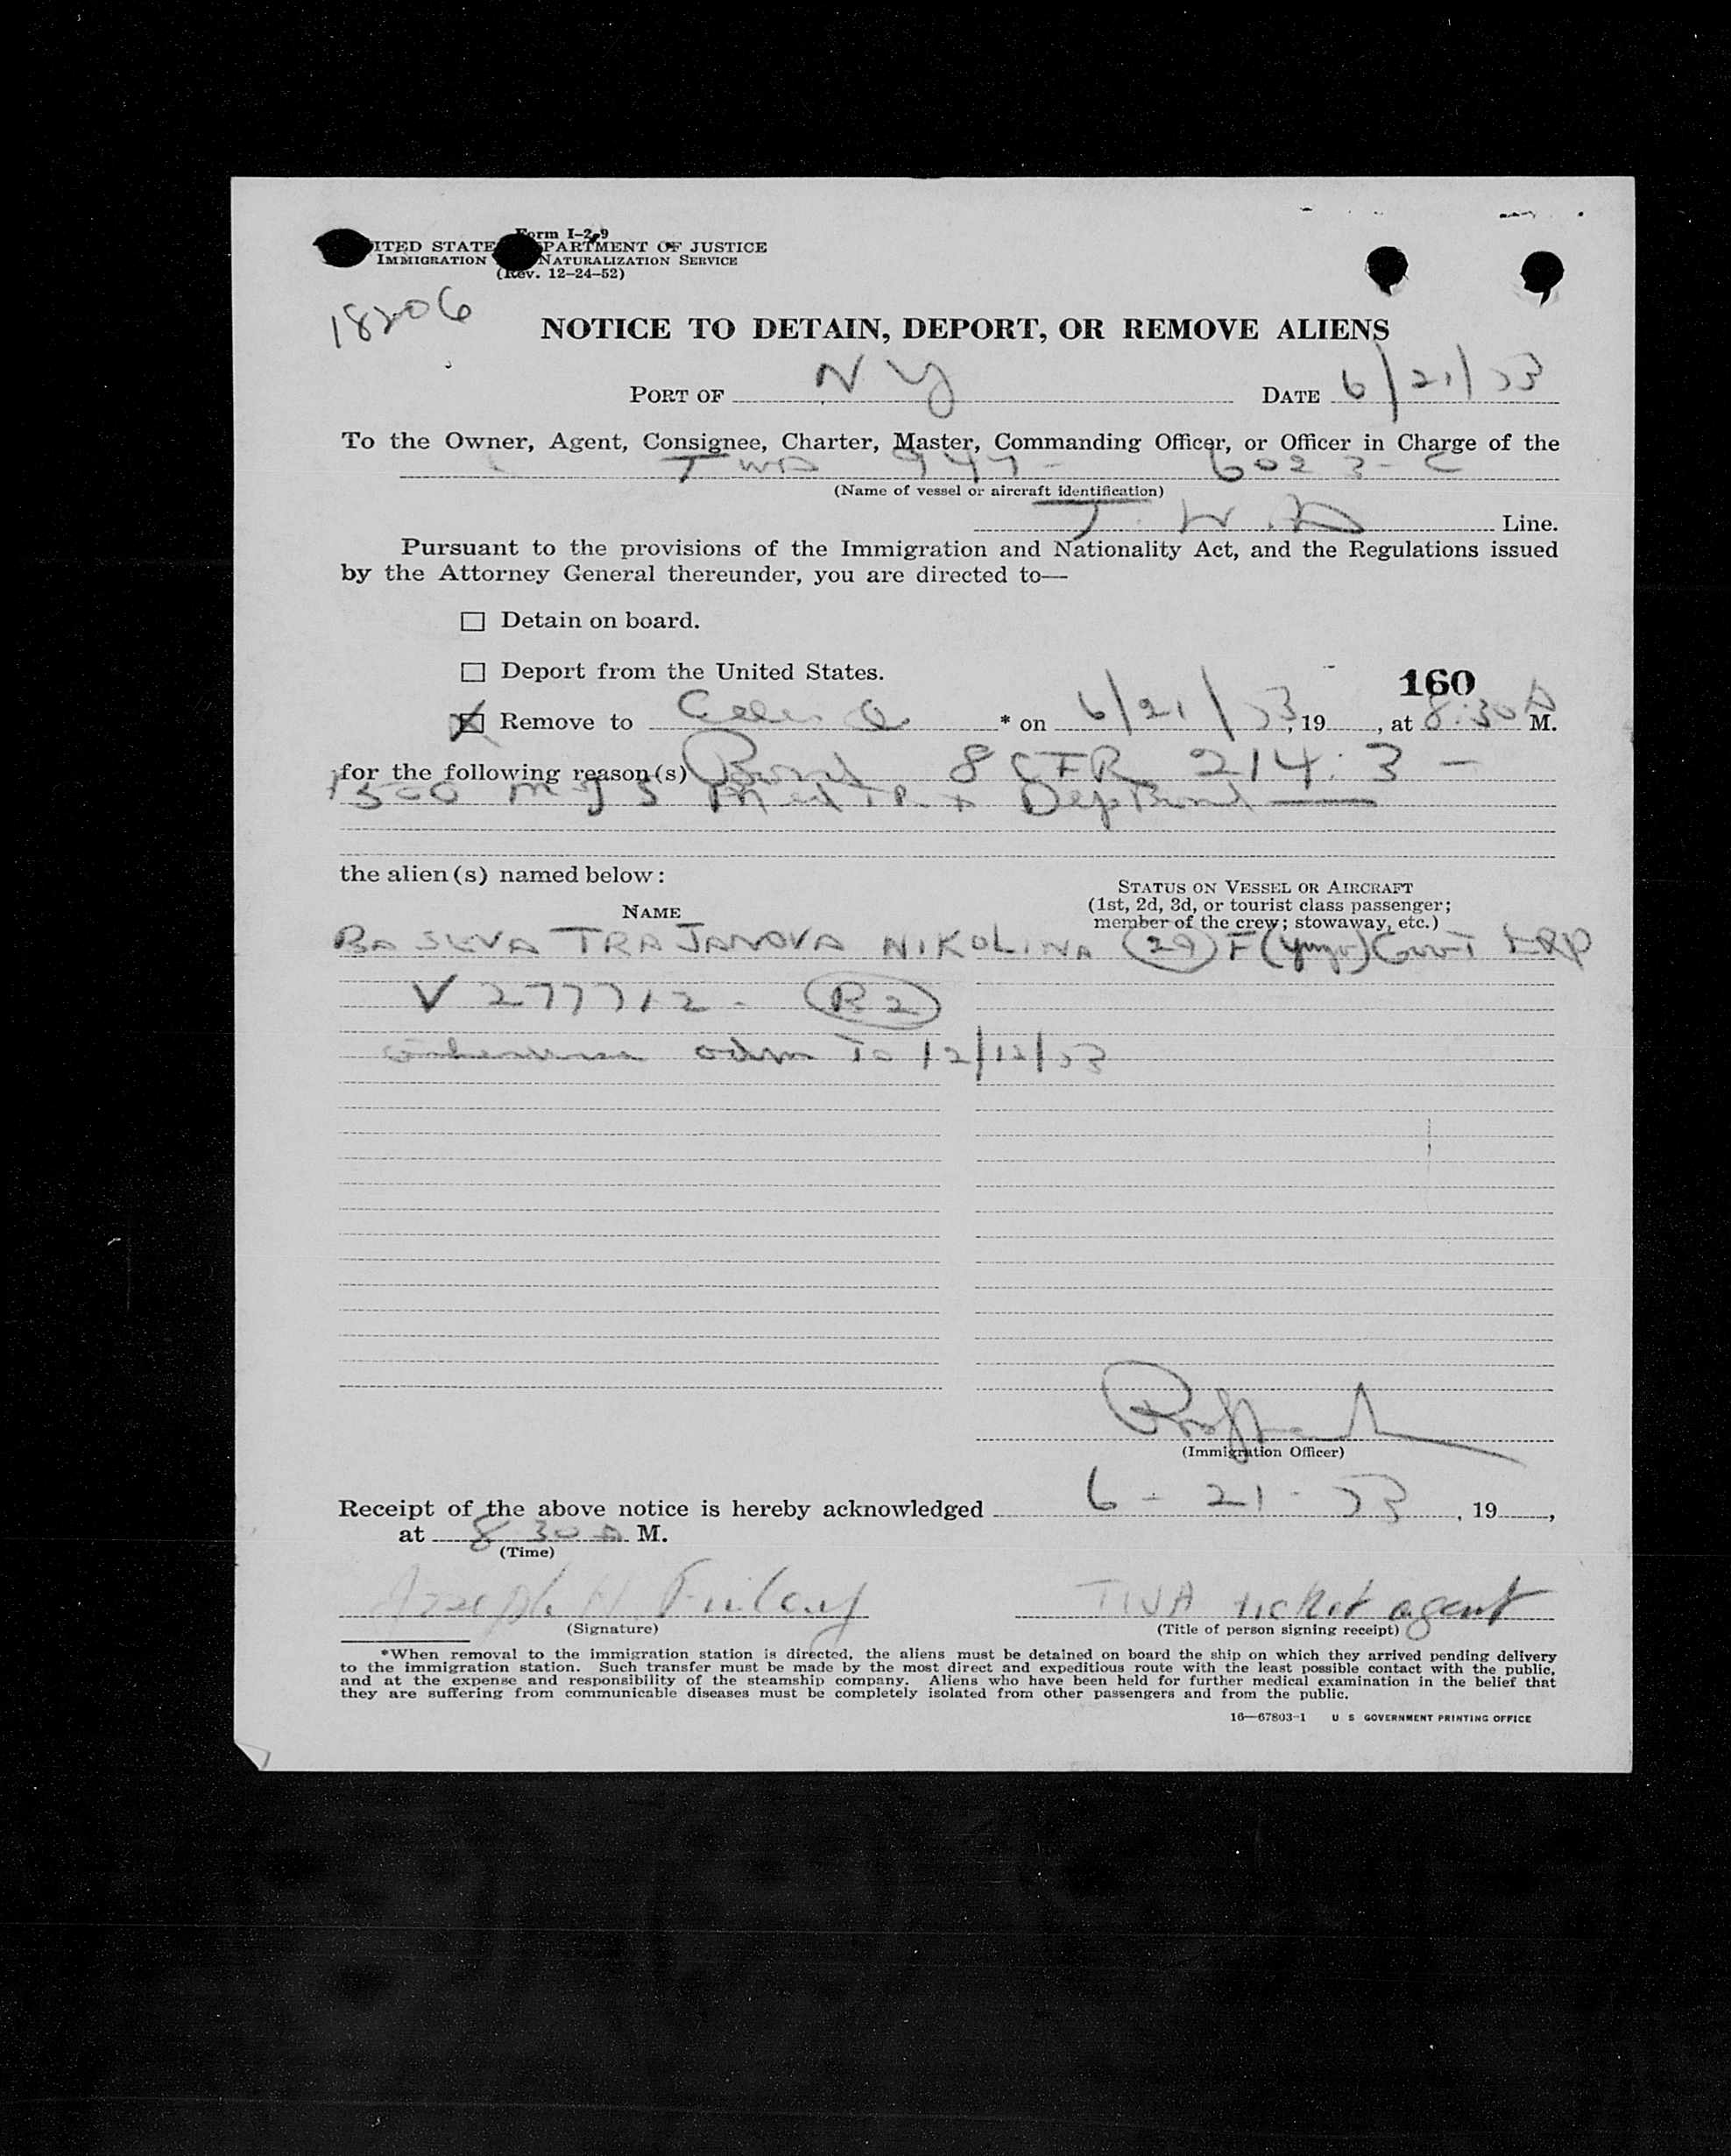 Form I-259
ITED STATE PARTMENT OF JUSTICE
IMMIGRATION NATURALIZATION SERVICE
(Rev. 12-24-52)
18206
NOTICE TO DETAIN, DEPORT, OR REMOVE ALIENS
PORT OF N Y DATE 6/21/53
To the Owner, Agent, Consignee, Charter, Master, Commanding Officer, or Officer in Charge of the
TWA 947 - 6023-C
(Name of vessel or aircraft identification)
T.W.A Line.
Pursuant to the provisions of the Immigration and Nationality Act, and the Regulations issued
by the Attorney General thereunder, you are directed to—
Detain on board.
Deport from the United States.
160
Remove to Ellis Is * on 6/21/53, 19, at 8:30 A M.
for the following reason(s) Bond 8 CFR 214.3 -
500 Dep Bond
the alien(s) named below:
STATUS ON VESSEL OR AIRCRAFT
(1st, 2d, 3d, or tourist class passenger;
member of the crew; stowaway, etc.)
NAME
TRAJANOVA NIKOLINA (29) F (Yugo)
V 277712 - (B2)
adm To 12/12/53
(Immigration Officer)
Receipt of the above notice is hereby acknowledged 6-21-53, 19,
at 8 30 A M.
(Time)
Joseph H. Finlay TWA ticket agent
(Signature) (Title of person signing receipt)
*When removal to the immigration station is directed, the aliens must be detained on board the ship on which they arrived pending delivery
to the immigration station. Such transfer must be made by the most direct and expeditious route with the least possible contact with the public,
and at the expense and responsibility of the steamship company. Aliens who have been held for further medical examination in the belief that
they are suffering from communicable diseases must be completely isolated from other passengers and from the public.
16—67803-1 U S GOVERNMENT PRINTING OFFICE